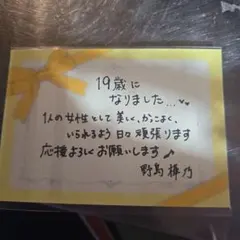 19歳に
なりました...♥♥
1人の女性として美しく、かっこよく、
いられるよう日々頑張ります
応援よろしくお願いします♪
野島樺乃